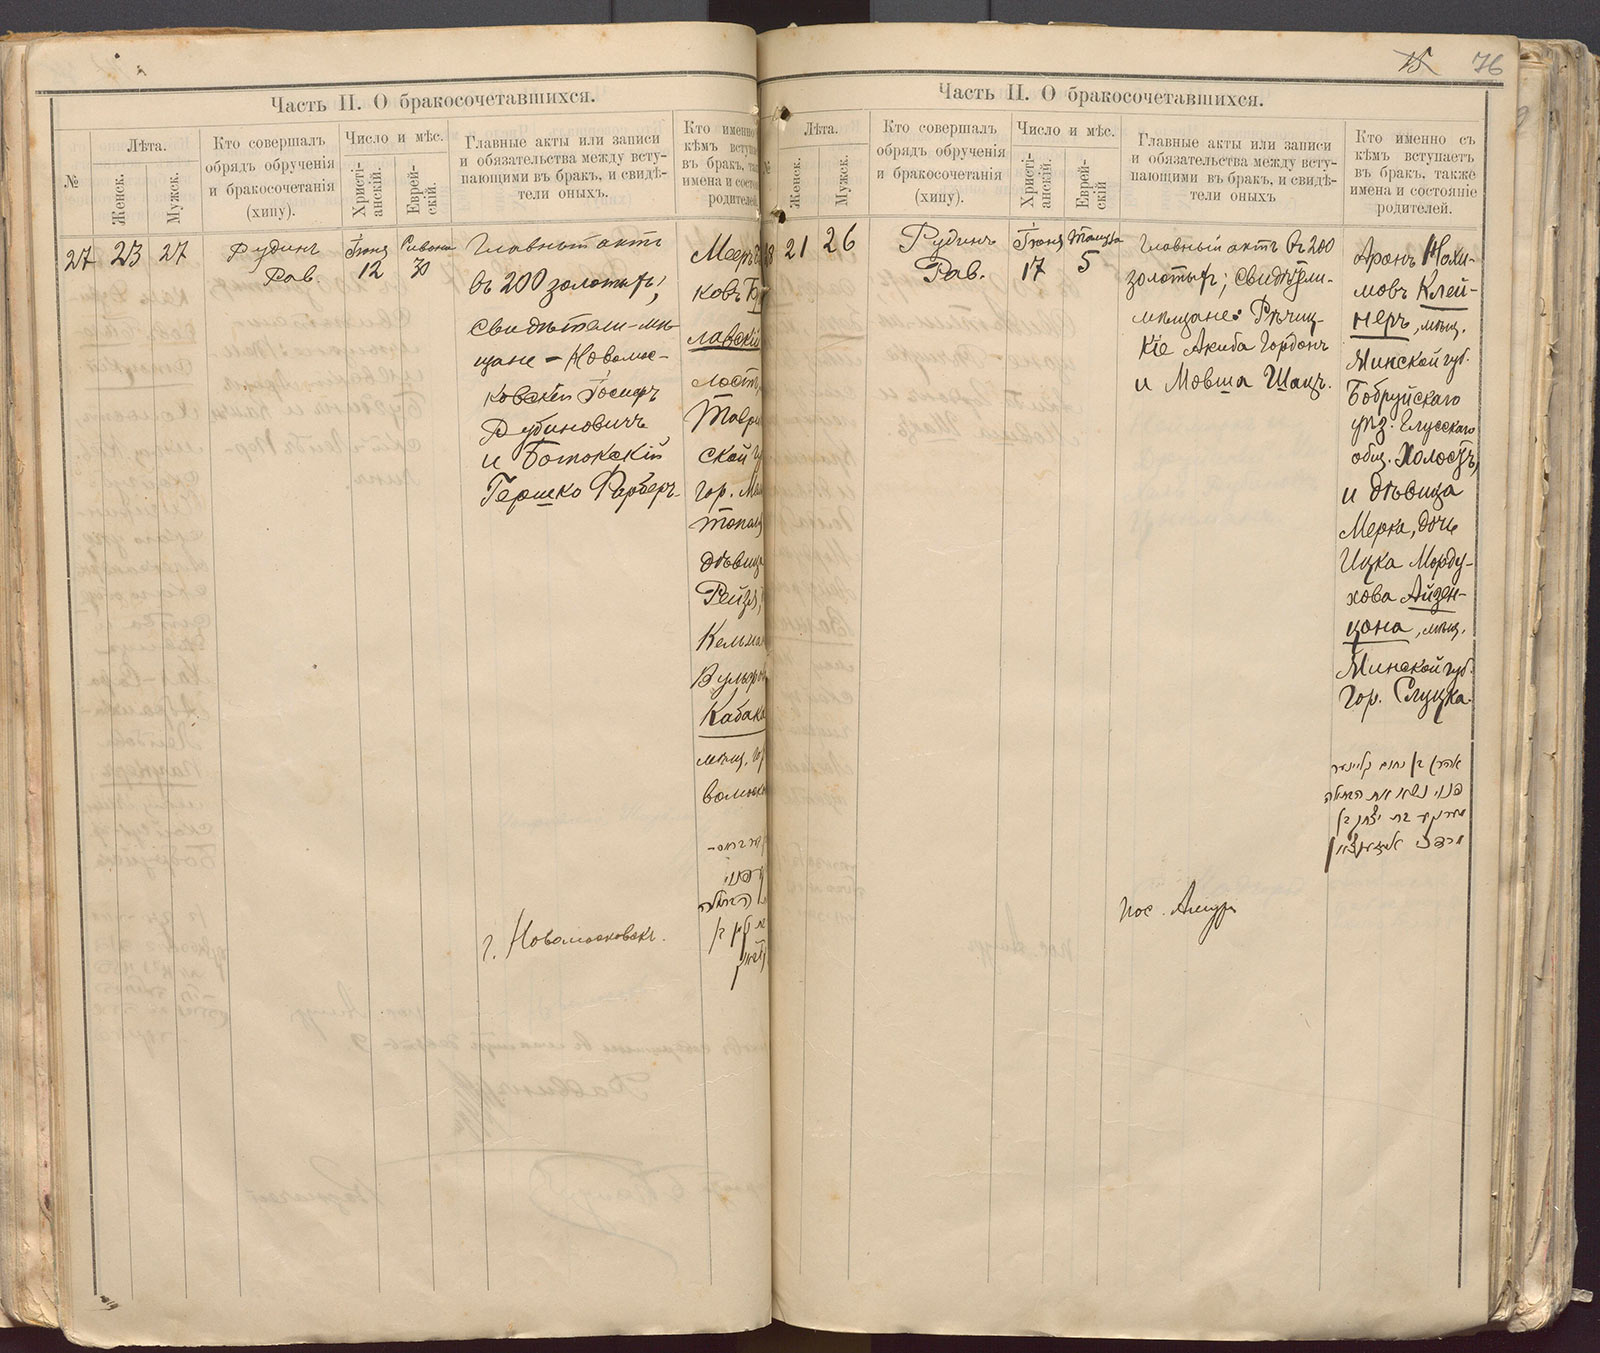 Часть II. О бракосочетавшихся.
№
Лѣта.
Женск.
Мужск.
Кто совершалъ
обрядъ обрученія
и бракосочетанія
(хипу).
Число и мѣс.
Христі-
анскій.
Еврей-
скій.
Главные акты или записи
и обязательства между всту-
пающими въ бракъ, и свидѣ-
тели оныхъ.
Кто именно
кѣмъ вступа
въ бракъ, так
имена и состо
родителей.
27
23
27
Рудинъ
Рав.
Іюня
12
Сивана
30
Главный актъ
въ 200 золотыхъ;
свидѣтели – мѣ-
щане – Новомос-
ковскій Іосифъ
Рубиновичъ
и Богопскій
Гершко Фарберъ.
г. Новомосковскъ.
Мееръ
ковъ
лавскій
лостъ,
Таври
ской г
гор. Ме
топол
дѣвица
Рейзя,
Кельма
Вульфов
Кабако
мѣщ. го
вомоск
76
Часть II. О бракосочетавшихся.
№
Лѣта.
Женск.
Мужск.
Кто совершалъ
обрядъ обрученія
и бракосочетанія
(хипу).
Число и мѣс.
Христі-
анскій.
Еврей-
скій
Главные акты или записи
и обязательства между всту-
пающими въ бракъ, и свидѣ-
тели оныхъ
Кто именно съ
кѣмъ вступаетъ
въ бракъ, также
имена и состояніе
родителей.
8
21
26
Рудинъ
Рав.
Іюня
17
Тамуза
5
Главный актъ въ 200
золотыхъ; свидѣтели-
мѣщане: Рѣчиц-
кіе Акиба Гордонъ
и Мовша Шацъ.
пос. Амуръ
Аронъ Нохи-
мовъ Клей-
неръ, мѣщ.
Минской губ.
Бобруйскаго
уѣз. Глусскаго
общ. Холостъ,
и дѣвица
Мерка, дочь
Ицка Морду-
хова Айзен-
цона, мѣщ.
Минской губ.
гор. Слуцка.
אהרן בן נחום קליינער
פנוי נשא את הבתולה
מערקע בת יצחק בן
מרדכי אייזענצאן